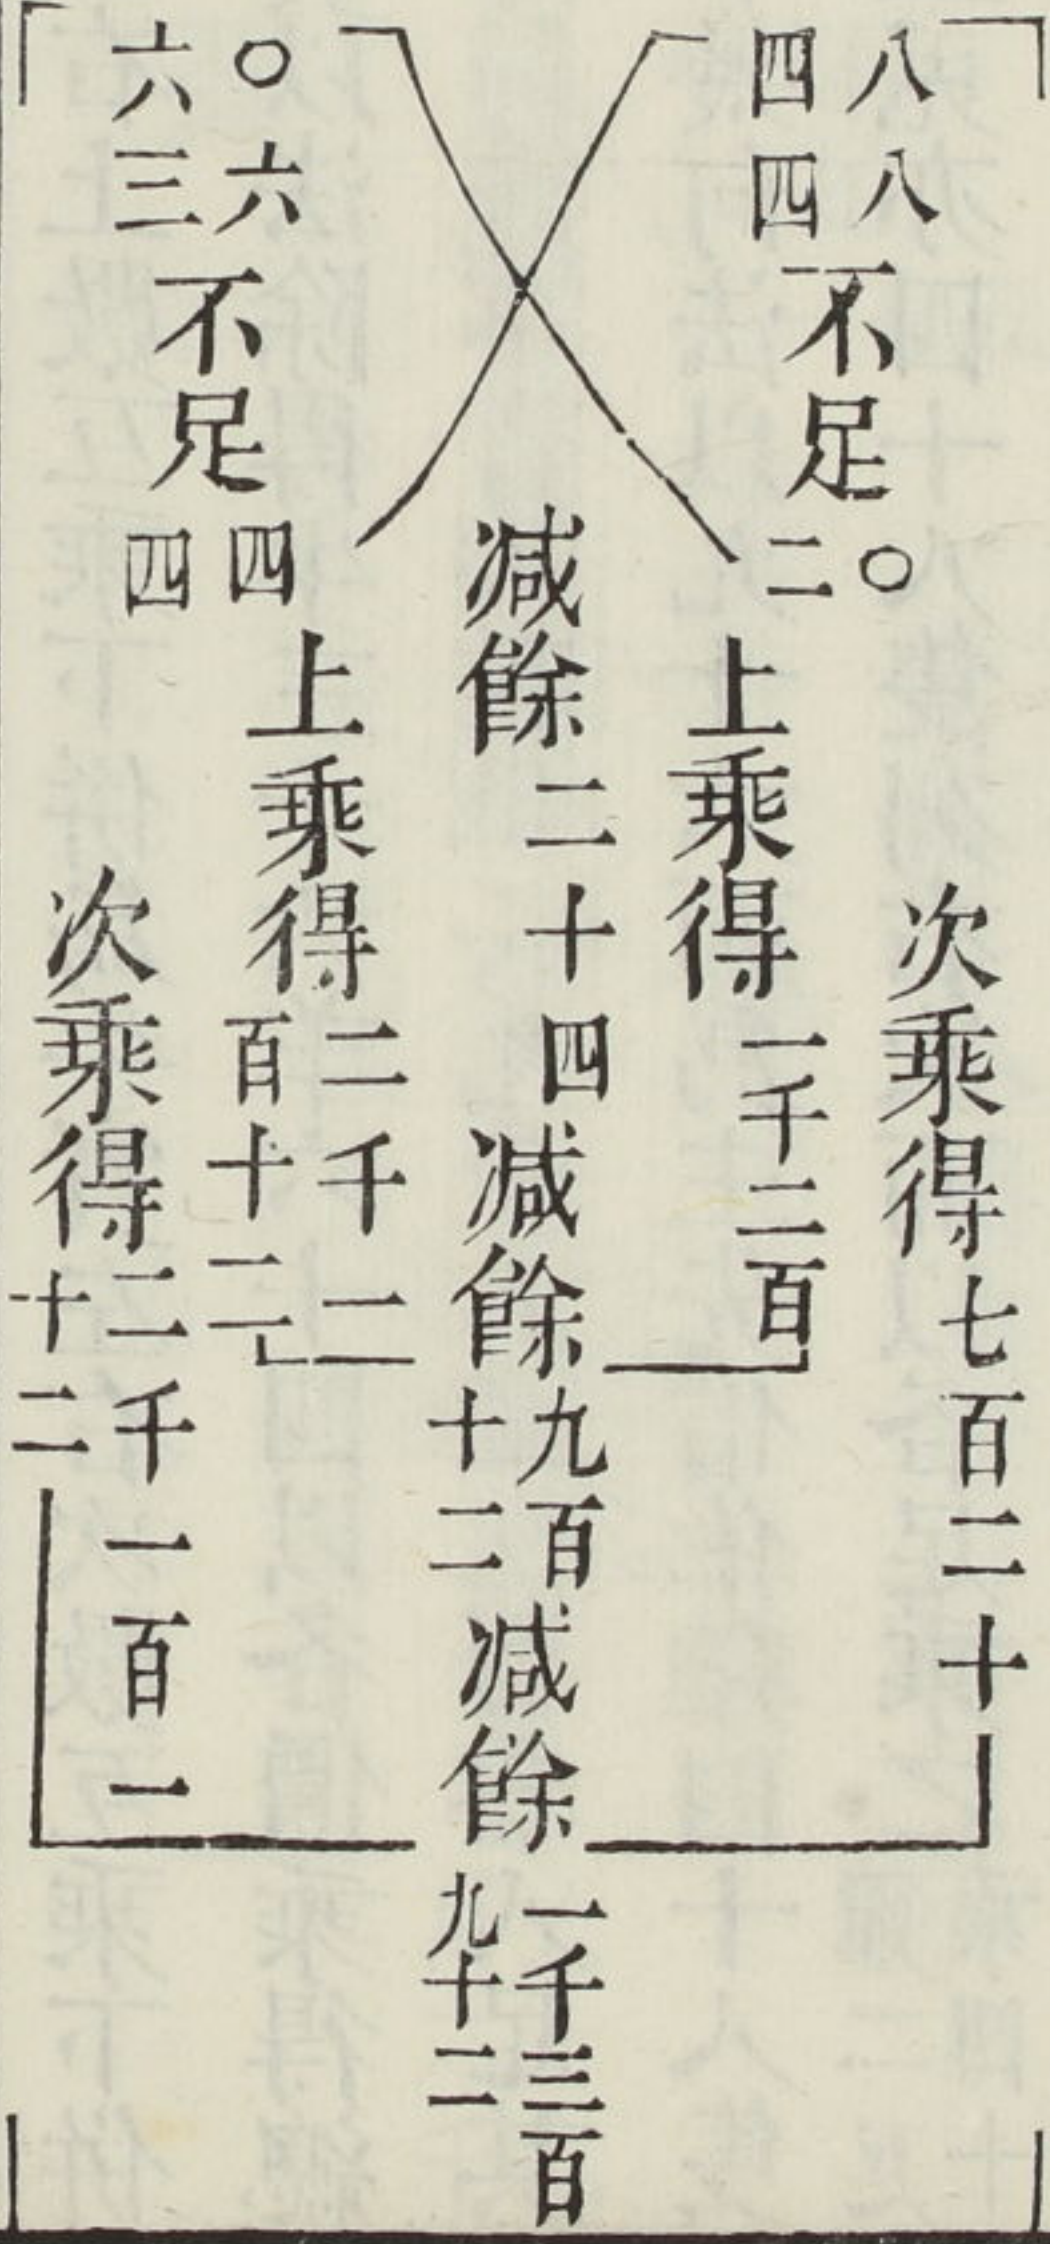 四八
四八
不足
二〇
次乘得七百二十
上乘得一千二百
减餘二十四
减餘九百
十二
减餘一千三百
九十二
六〇
三六
不足
四四
上乘得二千一
百十二
次乘得二千一百一
十二